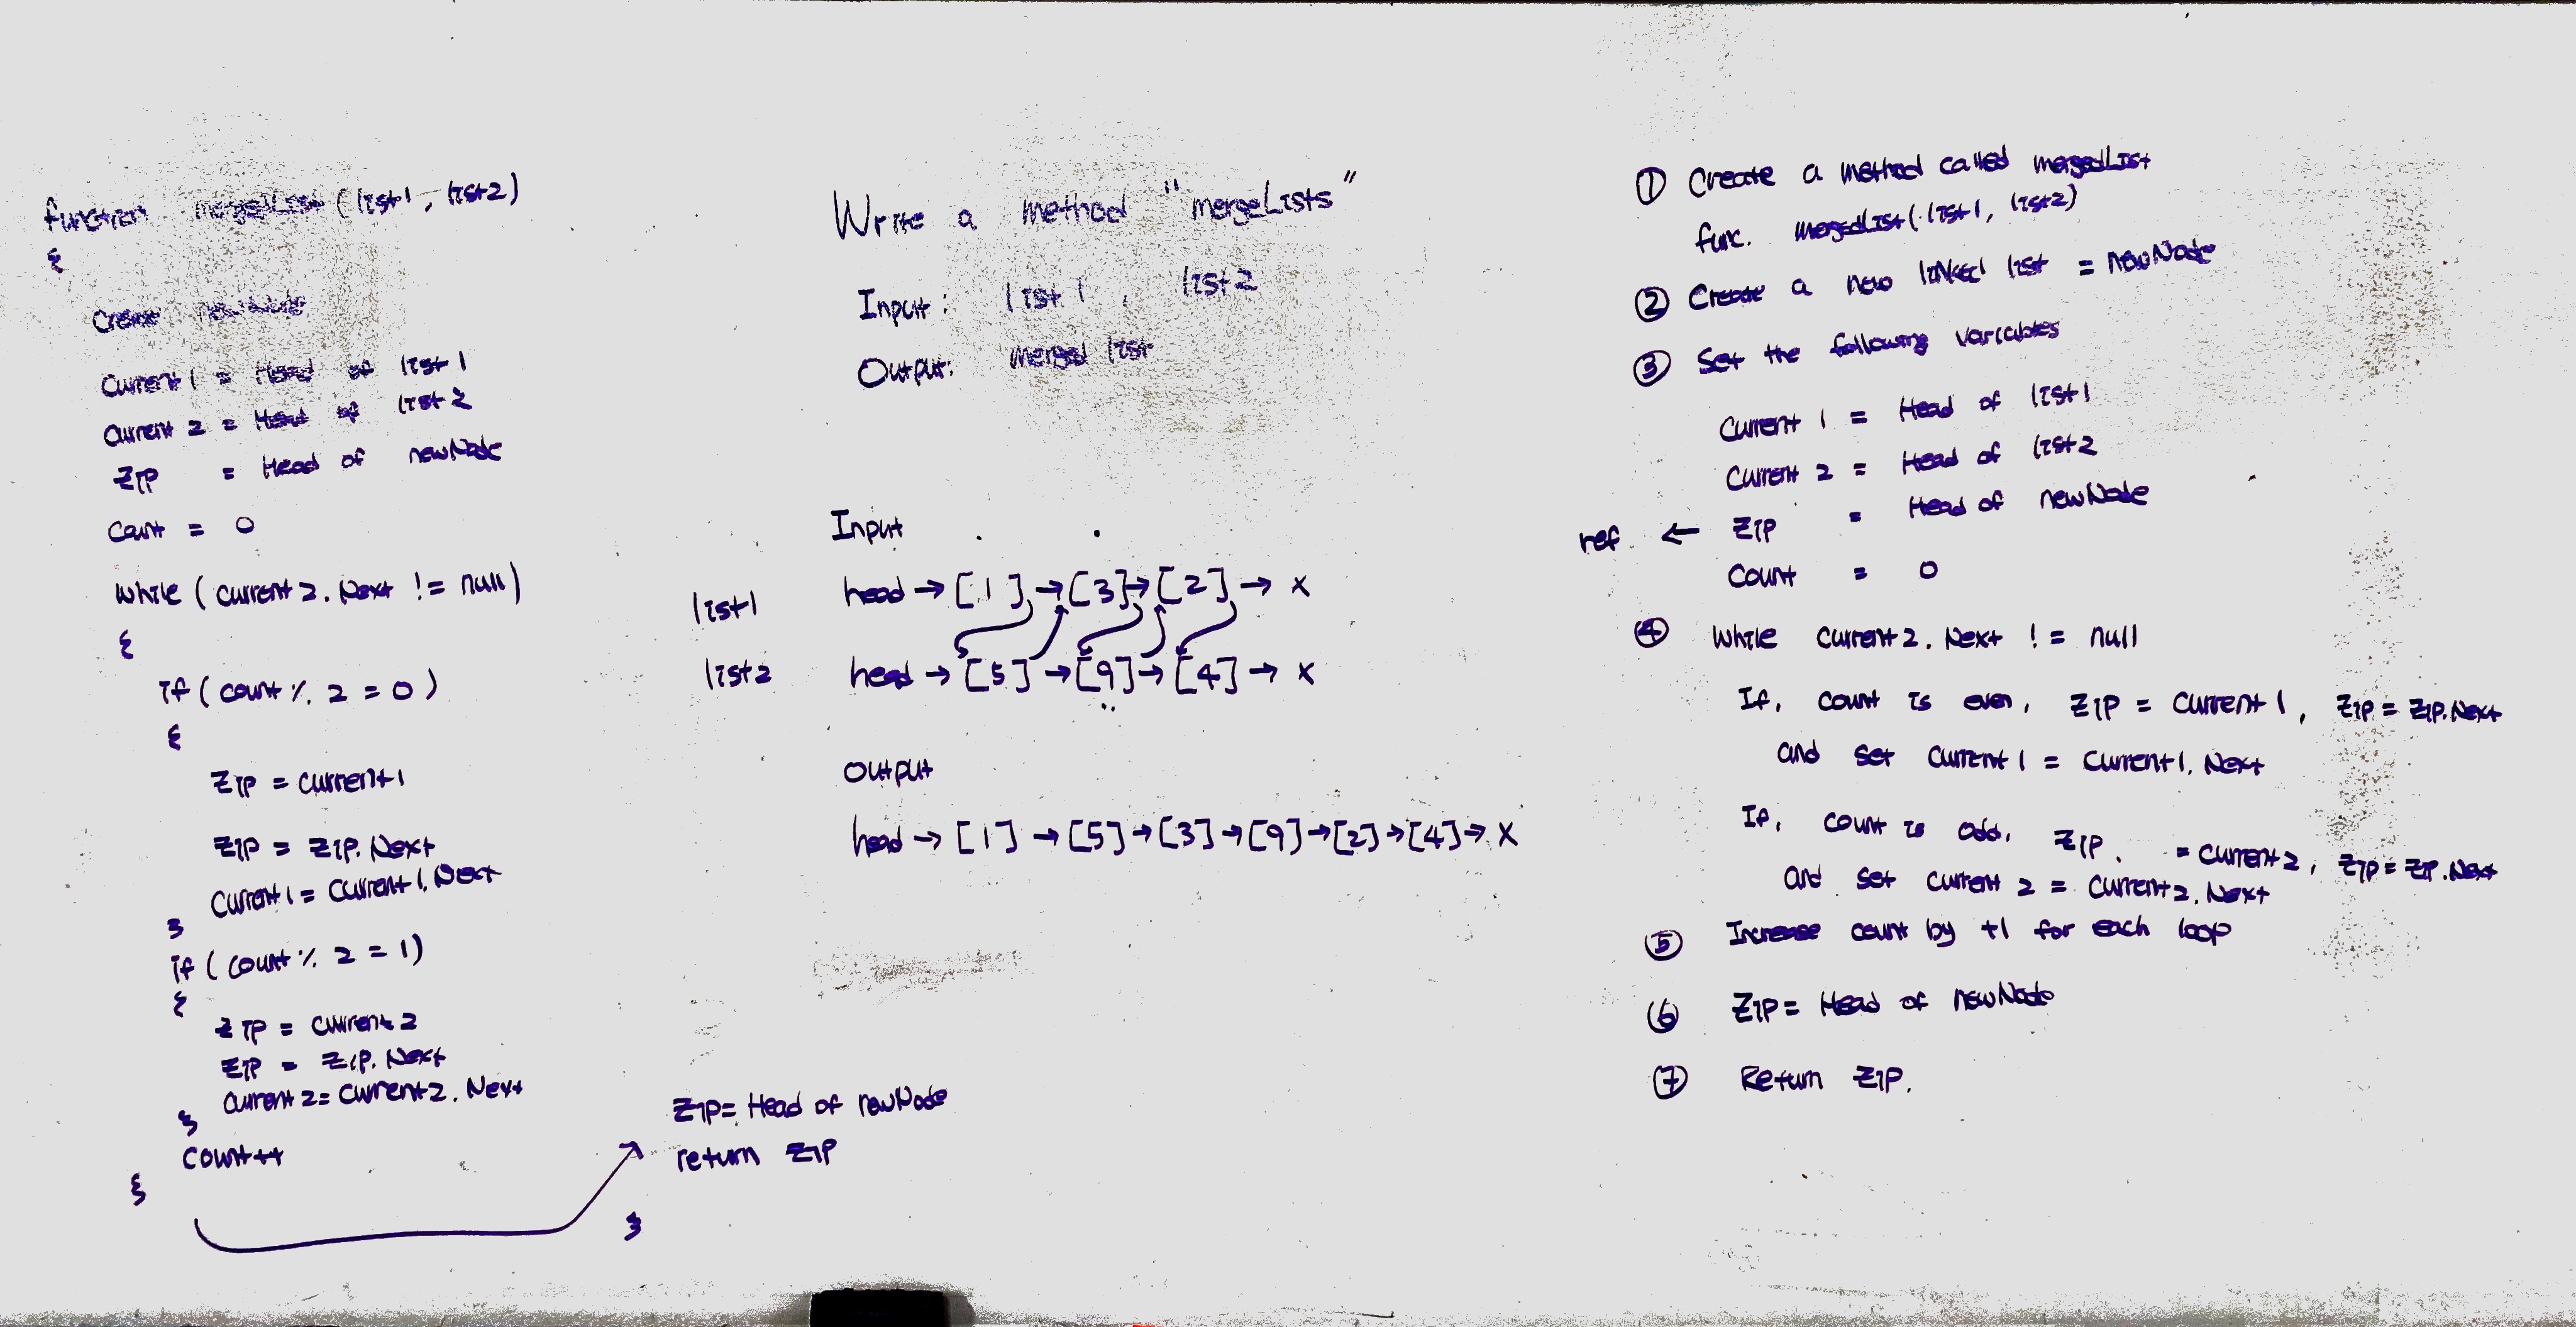 function mergedList (list1, list2)
{
Create newNode
Current 1 = Head of list 1
Current 2 = Head of list 2
Zip = Head of newNode
Count = 0
While (Current 2. Next != null)
{
if (count % 2 = 0)
{
Zip = Current 1
Zip = Zip. Next
Current 1 = Current 1. Next
}
if (count % 2 = 1)
{
Zip = Current 2
Zip = Zip. Next
Current 2 = Current 2. Next
}
Count++
}
Zip = Head of newNode
return Zip
}
Write a method "mergeLists"
Input: list 1, list 2
Output: merged list
Input
list1 head → [1] → [3] → [2] → X
list2 head → [5] → [9] → [4] → X
Output
head → [1] → [5] → [3] → [9] → [2] → [4] → X
① Create a method called mergedList
func. mergedList (list1, list2)
② Create a new linked list = newNode
③ Set the following variables
Current 1 = Head of list 1
Current 2 = Head of list 2
ref ← Zip = Head of newNode
Count = 0
④ While Current 2. Next != null
If, count is even, Zip = Current 1, Zip = Zip. Next
and set Current 1 = Current 1. Next
If, count is odd, Zip = Current 2, Zip = Zip. Next
and set Current 2 = Current 2. Next
⑤ Increase count by +1 for each loop
⑥ Zip = Head of newNode
⑦ Return Zip.